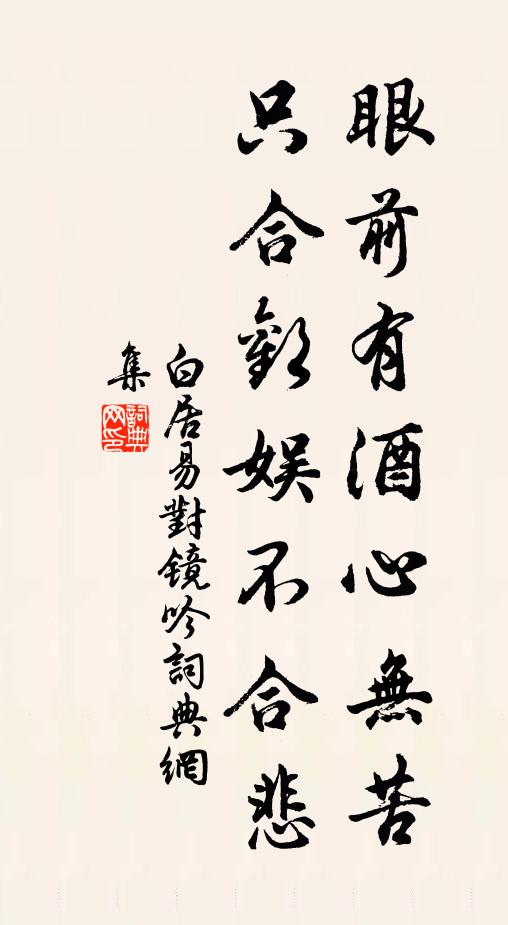 眼前有酒心無苦
只合歡娱不合悲
白居易對鏡吟詞典網
集
詞典网印